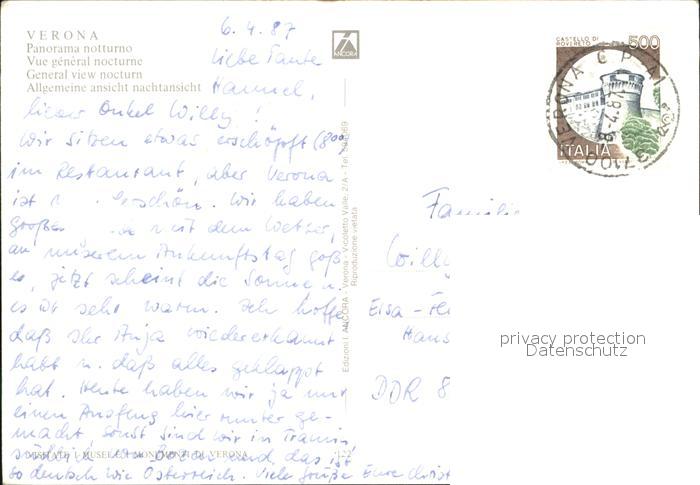 VERONA
Panorama notturno
Vue général nocturne
General view nocturn
Allgemeine ansicht nachtansicht
ANCORA
6.4.87
Liebe Tante
Hannel,
lieber Onkel Willy!
Wir sitzen etwas erschöpft (8⁰⁰
im Restaurant, aber Verona
ist schön. Wir haben
großes mit dem Wetter,
an unserem Ankunftstag goß
es, jetzt scheint die Sonne u.
es ist sehr warm. Ich hoffe
daß Ihr Anja wiedererkannt
habt u. daß alles geklappt
hat. Heute haben wir ja nur
einen Ausflug hier runter ge-
macht, sonst sind wir in Tramin
südlich Bozen und das ist
so deutsch wie Österreich. Viele Grüße Eure
VISITATE I MUSEI E I MONUMENTI DI VERONA
Edizioni I. ANCORA - Verona - Vicoletto Valle, 2/A - Tel.
Riproduzione vietata
CASTELLO DI
ROVERETO
500
ITALIA
VERONA C.P. A.I.
37100
Familie
Willy
Elsa -
Hans
DDR 8
privacy protection
Datenschutz